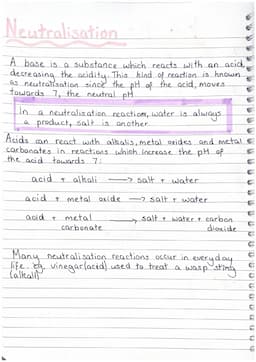 Neutralisation
A base is a substance which reacts with an acid,
decreasing the acidity. This kind of reaction is known
as neutralisation since the pH of the acid, moves
towards 7, the neutral pH.
In a neutralisation reaction, water is always
a product, salt is another.
Acids can react with alkalis, metal oxides and metal
carbonates in reactions which increase the pH of
the acid towards 7:
acid + alkali → salt + water
acid + metal oxide → salt + water
acid + metal → salt + water + carbon
carbonate dioxide
Many neutralisation reactions occur in everyday
life. eg. vinegar (acid) used to treat a wasp sting
(alkali)